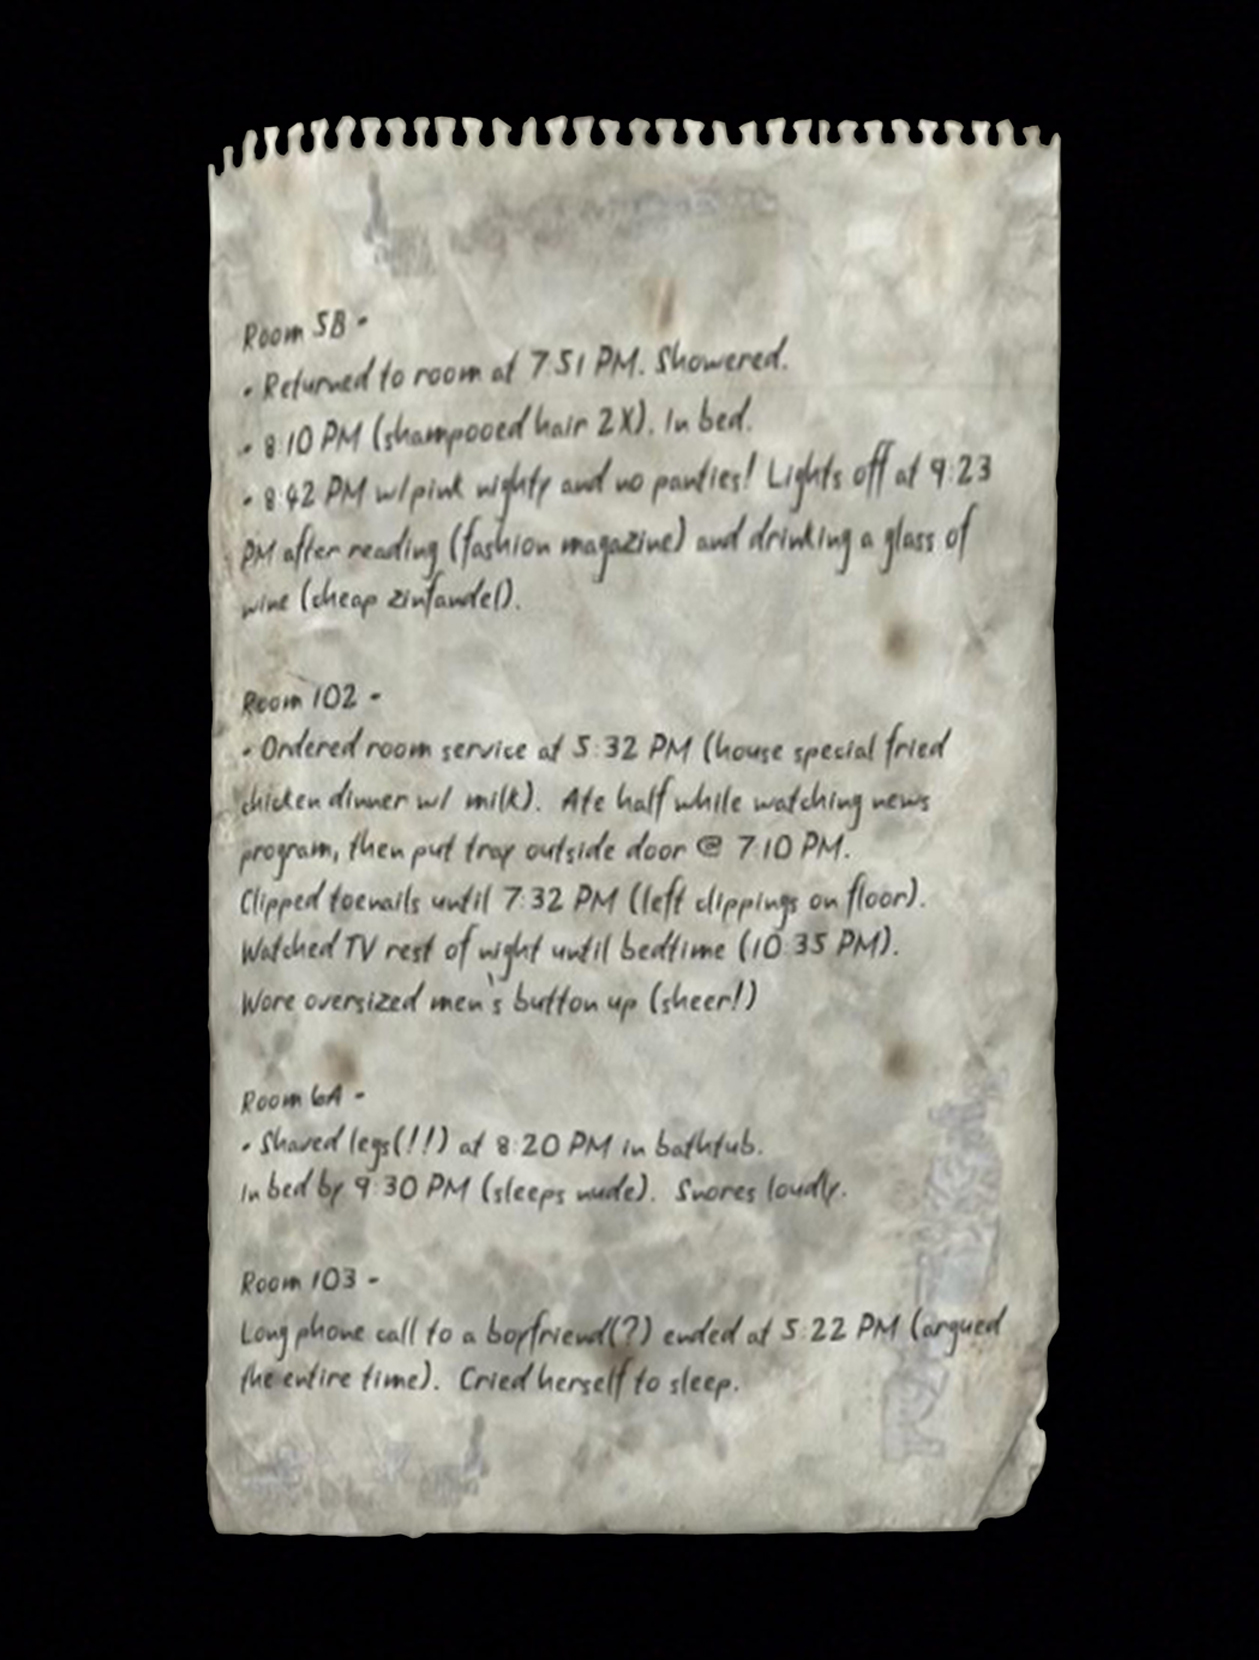 Room 5B -
• Returned to room at 7:51 PM. Showered.
• 8:10 PM (shampooed hair 2X). In bed.
• 8:42 PM w/pink nighty and no panties! Lights off at 9:23
PM after reading (fashion magazine) and drinking a glass of
wine (cheap zinfandel).
Room 102 -
• Ordered room service at 5:32 PM (house special fried
chicken dinner w/ milk). Ate half while watching news
program, then put tray outside door @ 7:10 PM.
Clipped toenails until 7:32 PM (left clippings on floor).
Watched TV rest of night until bedtime (10:35 PM).
Wore oversized men's button up (sheer!)
Room 6A -
• Shaved legs(!!) at 8:20 PM in bathtub.
In bed by 9:30 PM (sleeps nude). Snores loudly.
Room 103 -
Long phone call to a boyfriend(?) ended at 5:22 PM (argued
the entire time). Cried herself to sleep.